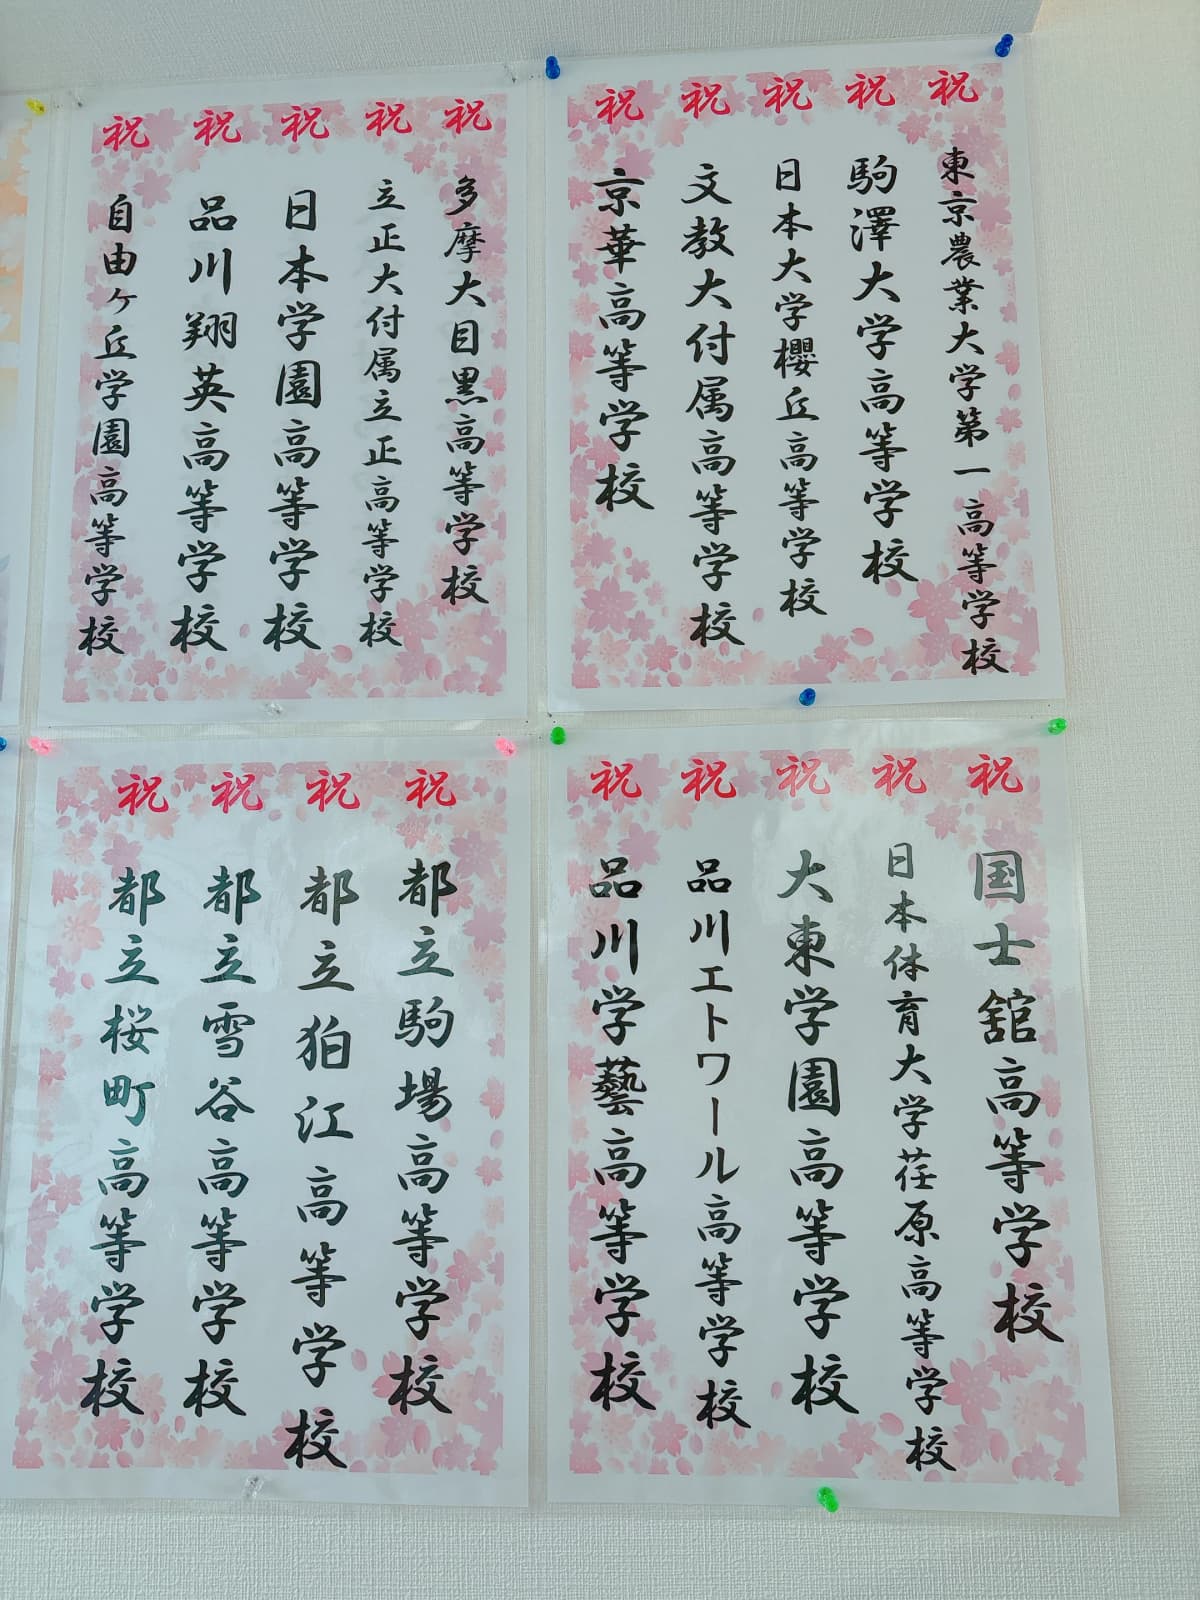 祝 東京農業大学第一高等学校
祝 駒澤大学高等学校
祝 日本大学櫻丘高等学校
祝 文教大付属高等学校
祝 京華高等学校
祝 多摩大目黒高等学校
祝 立正大付属立正高等学校
祝 日本学園高等学校
祝 品川翔英高等学校
祝 自由ヶ丘学園高等学校
祝 国士舘高等学校
祝 日本体育大学荏原高等学校
祝 大東学園高等学校
祝 品川エトワール高等学校
祝 品川学藝高等学校
祝 都立駒場高等学校
祝 都立狛江高等学校
祝 都立雪谷高等学校
祝 都立桜町高等学校